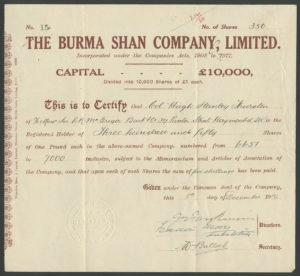 No. 15
No. of Shares 350
THE BURMA SHAN COMPANY, LIMITED.
Incorporated under the Companies Acts, 1908 to 1917.
CAPITAL £10,000,
Divided into 10,000 Shares of £1 each.
This is to Certify that Col. Hugh Stanley
is the
Registered Holder of Three hundred and fifty Shares
of One Pound each in the above-named Company, numbered from 6651
to 7000 Inclusive, subject to the Memorandum and Articles of Association
of the Company, and that upon each of such Shares the sum of five shillings has been paid.
Given under the Common Seal of the Company,
this day of December
Directors.
Secretary.